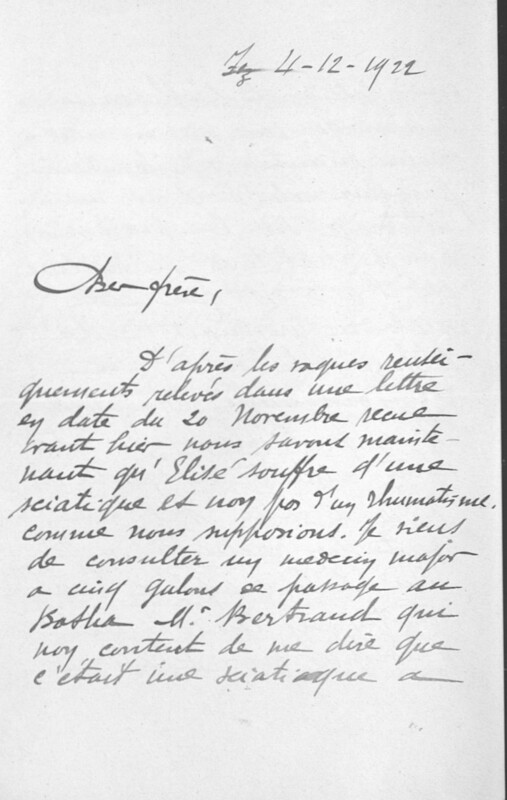 Fez 4-12-1922
Cher frère,
D'après les vagues rensei-
gnements relevés dans une lettre
en date du 20 Novembre recue
avant hier nous savons mainte-
nant qu'Elisé souffre d'une
sciatique et non pas d'un rhumatisme.
comme nous supposions. Je viens
de consulter un medecin major
a cinq galons de passage au
Batha Mr. Bertrand qui
non content de me dire que
c'était une sciatique a